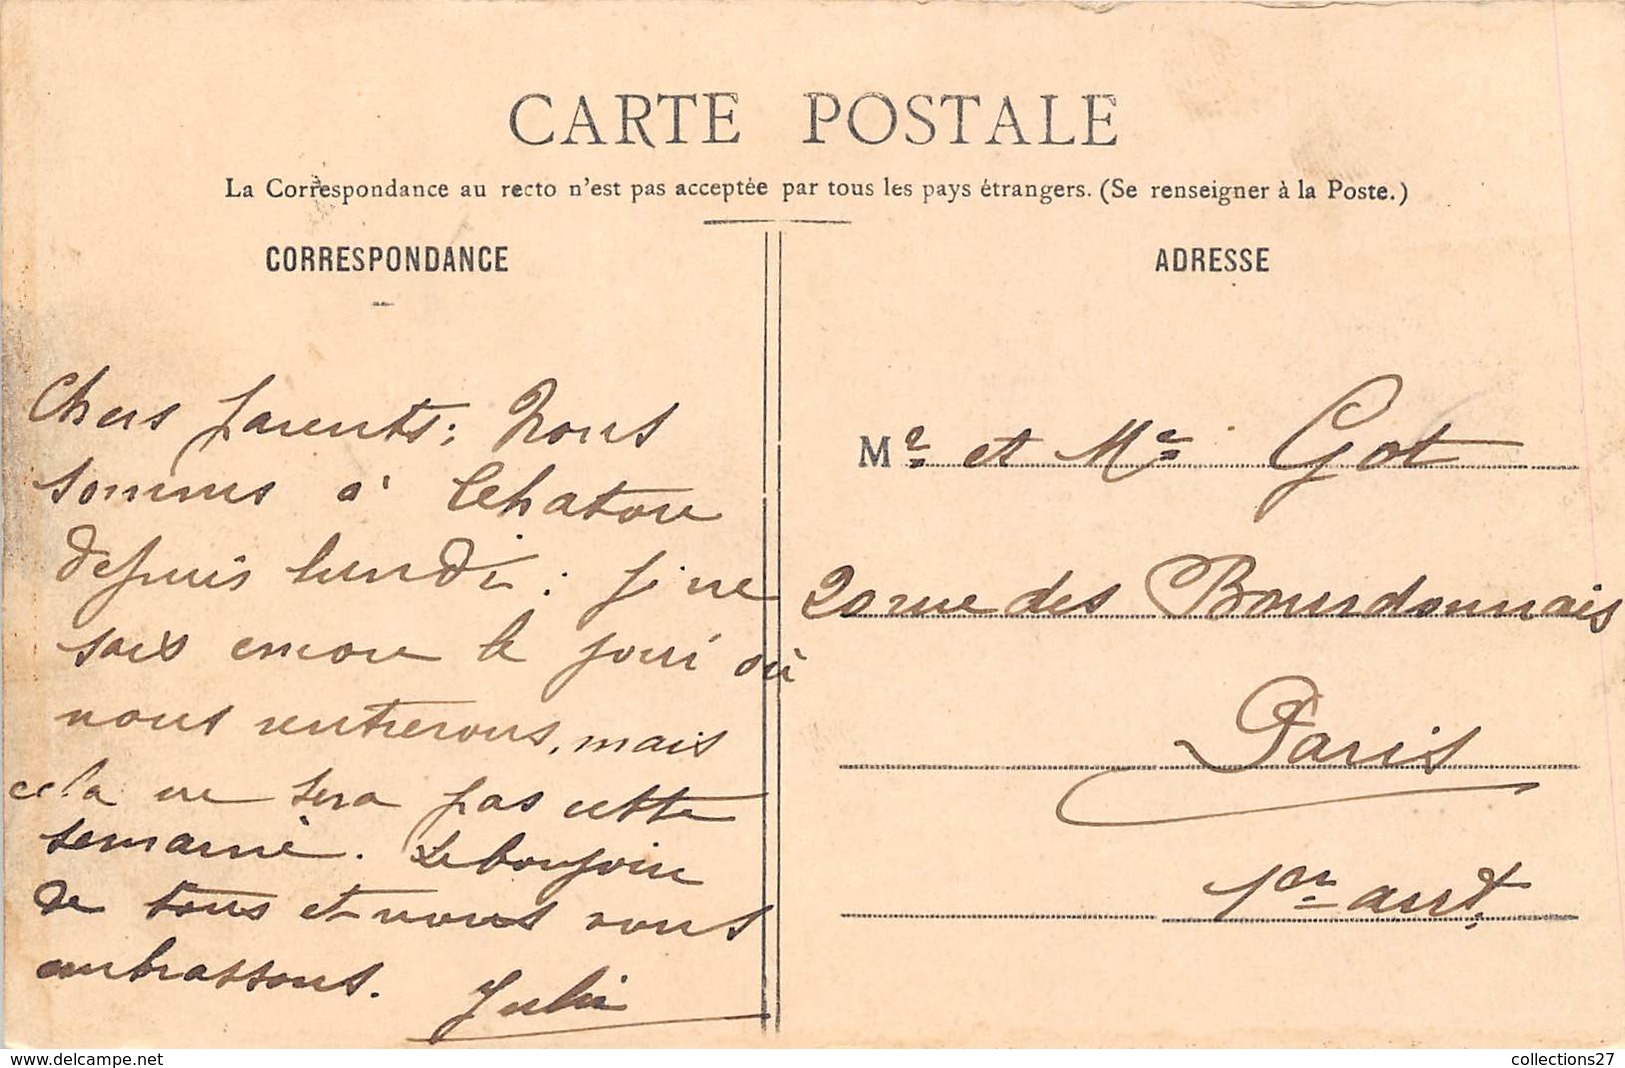 CARTE POSTALE
La Correspondance au recto n'est pas acceptée par tous les pays étrangers. (Se renseigner à la Poste.)
CORRESPONDANCE
Chers parents; Nous
sommes à
depuis lundi. je ne
sais encore le jour où
nous rentrerons, mais
cela ne sera pas cette
semaine. Le bonjour
de tous et nous vous
embrassons. Julie
ADRESSE
Mr et Me Got
20 rue des Bourdonnais
Paris
1er arrt.
collections27
www.delcampe.net